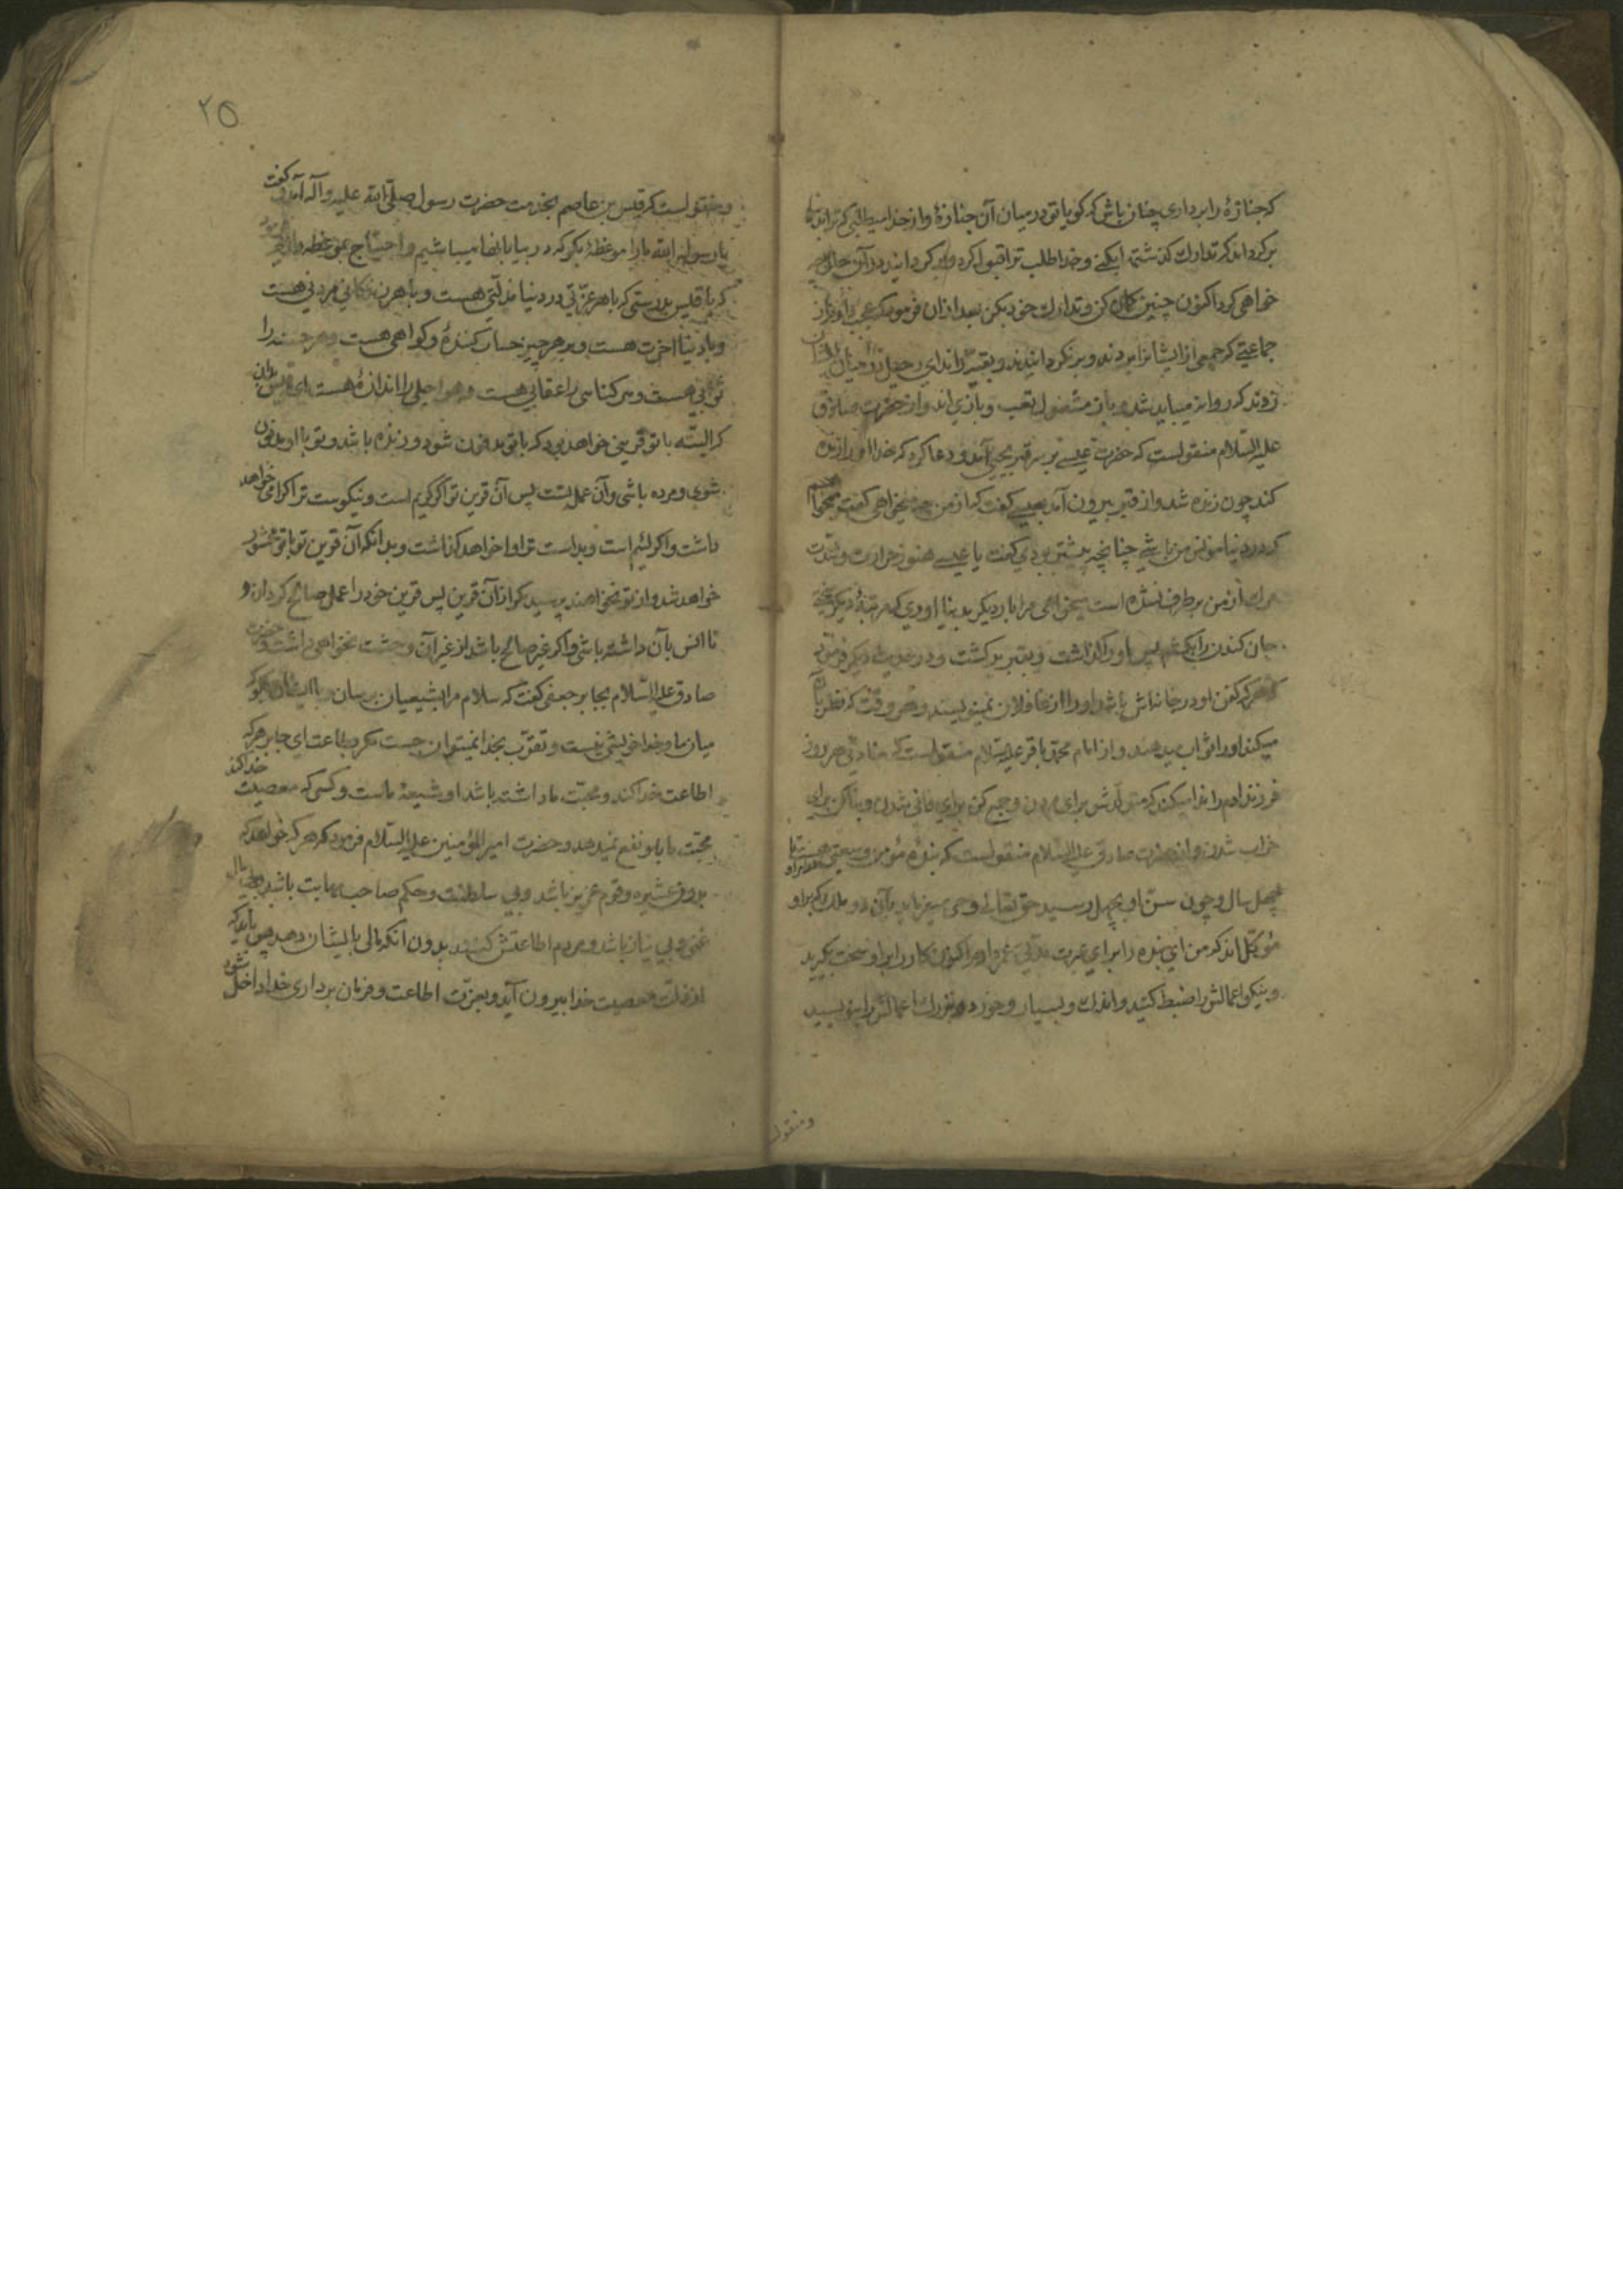 که جنازهٔ را برداری چنان باش که کویا تو در میان آن جنازهٔ و از خدا میطلبی که ترا بدنیا
بر کرداند که تدارک کذشته ایکنی و خدا طلب ترا قبول کرد و بر کردانید در آن حال چه
خواهی کرد اکنون چنین کمان کن و تدارک خود بکن بعد از آن فرمود که عجب دارم از
جماعتی که جمعی از ایشانرا بردند و بر نکردانیدند و بقیه را ندای رحیل در میان ایشان
زدند که روانه میباید شد و باز مشغول لعب و بازی اند و از حضرت صادق
علیه السلام منقولست که حضرت عیسی بر سر قبر یحیی آمد و دعا کرد که خدا او را زنده
کند چون زنده شد و از قبر بیرون آمد بعیسی کفت که از من چه میخواهی کفت میخواهم
که در دنیا مونس من باشی چنانچه پیشتر بودی کفت یا عیسی هنوز حرارت و شدت
مرک از من بر طرف نشده است میخواهی مرا بار دیکر بدنیا اوری که مرتبهٔ دیکر
جان کندن را بکشم پس او را کذاشت و بقبر برکشت و در حدیث دیکر فرمود
که هرکه کفن او در خانه‌اش باشد او را از غافلان نمینویسند و هر وقت که نظر بآن
میکند او را ثواب میدهند و از امام محمد باقر علیه السلام منقولست که منادی هر روز
فرزند آدم را ندا میکند که متولد شو برای مردن و جمع کن برای فانی شدن و بنا کن برای
خراب شدن و از حضرت صادق علیه السلام منقولست که بندهٔ مؤمن وسعتی هست تا
چهل سال و چون سن او بچهل رسید حق تعالی وحی میفرماید بآن دو ملک که بر او
مؤکل اند که من این بنده را برای عمرا و اکنون کار را بر او سخت بکیرید
و نیکو اعمالش را ضبط کنید و اندک و بسیار و خورد و بزرک اعمالش را بنویسید
و منقول
۲۵
و منقولست که قیس بن عاصم بخدمت حضرت رسول صلی الله علیه و آله آمد و کفت
یا رسول الله ما را موعظهٔ بکو که در بیابانها میباشیم و احتیاج بموعظه داریم فرمود
که یا قیس بدرستی که با هر عزتی در دنیا مذلتی هست و با هر زندکانی مردنی هست
و با دنیا اخرت هست و بر هر چیز حساب کنندهٔ و کواهی هست و هر حسنه را
ثوابی هست و هر کناهی را عقابی هست و هر اجلی را اندازهٔ هست ای قیس بدان
که البته با تو قرینی خواهد بود که با تو مدفون شود و زنده باشد و تو با او مدفون
شوی و مرده باشی و آن عمل تست پس آن قرین تو اکر کریم است و نیکوست ترا کرامی خواهد
داشت و اکر لئیم است و بد است ترا وا خواهد کذاشت و بدانکه آن قرین تو با تو محشور
خواهد شد و از تو نخواهند پرسید مکر از آن قرین پس قرین خود را عمل صالح کردان و
تا انس بآن داشته باشی و اکر غیر صالح باشد از غیر آن وحشت نخواهی داشت و حضرت
صادق علیه السلام بجابر جعفی کفت که سلام مرا بشیعیان برسان و با ایشان بکو که
میان ما و خدا خویشی نیست و تقرب بخدا نمیتوان جست مکر بطاعت ای جابر هر که
اطاعت خدا کند و محبت ما داشته باشد او شیعهٔ ماست و کسی که معصیت خدا کند
محبت ما باو نفع نمیدهد و حضرت امیر المؤمنین علیه السلام فرمود که هر که خواهد که
بدون عشیره و قوم عزیز باشد و بی سلطنت و حکم صاحب مهابت باشد و بی مال
غنی و بی نیاز باشد و مردم اطاعتش کنند بدون انکه مالی بایشان دهد پس باید که
از ذلت معصیت خدا بیرون آید و بعزت اطاعت و فرمان برداری خدا داخل شود